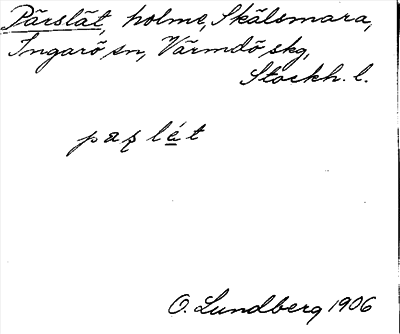 Pärslät, holme, Skälsmara,
Ingarö sn, Värmdö skg,
Stockh. l.
paʂlét
O. Lundberg 1906